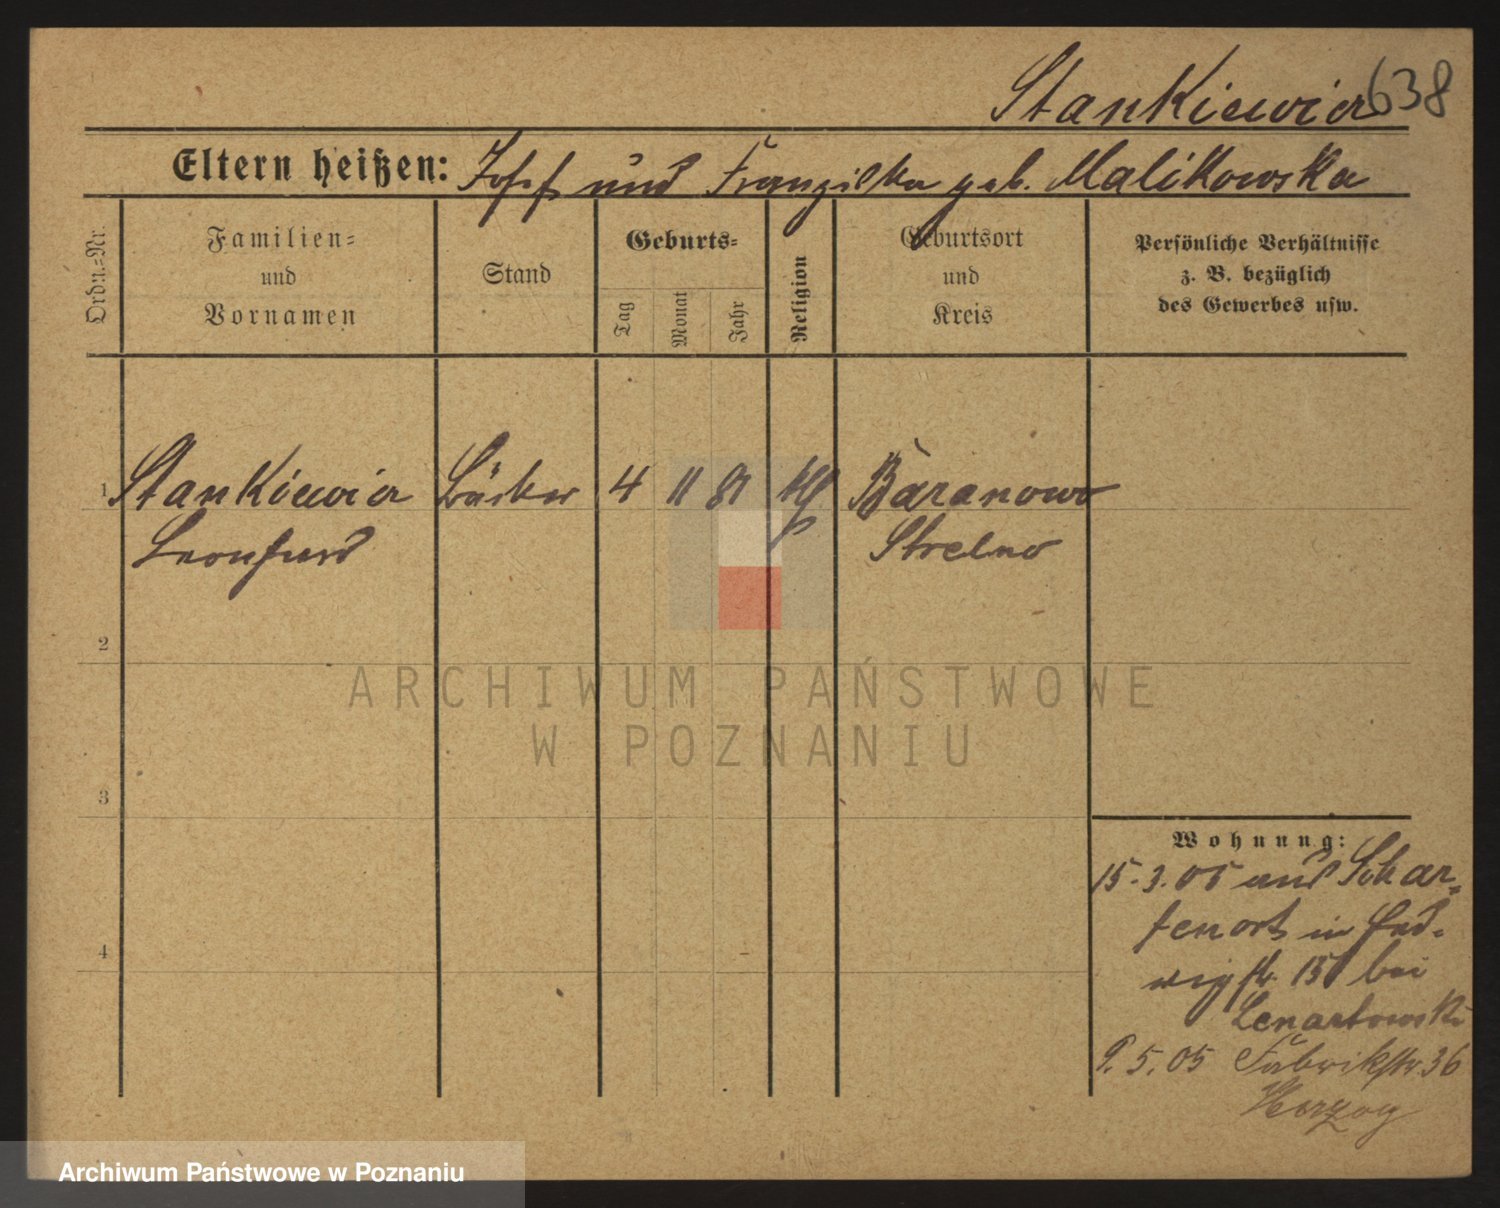 Stankiewicz 638
Eltern heißen: Josef und Franziska geb. Malikowska
Ordn.-Nr.
Familien-
und
Vornamen
Stand
Geburts-
Tag
Monat
Jahr
Religion
Geburtsort
und
Kreis
Persönliche Verhältnisse
z. B. bezüglich
des Gewerbes usw.
1 Stankiewicz Bäcker 4 11 81 kth Baranowo
Leonhard Strelno
2
3
4
Wohnung:
15.3.05 aus Schar-
fenort in Hed-
wigstr. 15 bei
Lenartowski
9.5.05 Fabrikstr. 36
Herzog
ARCHIWUM PAŃSTWOWE
W POZNANIU
Archiwum Państwowe w Poznaniu